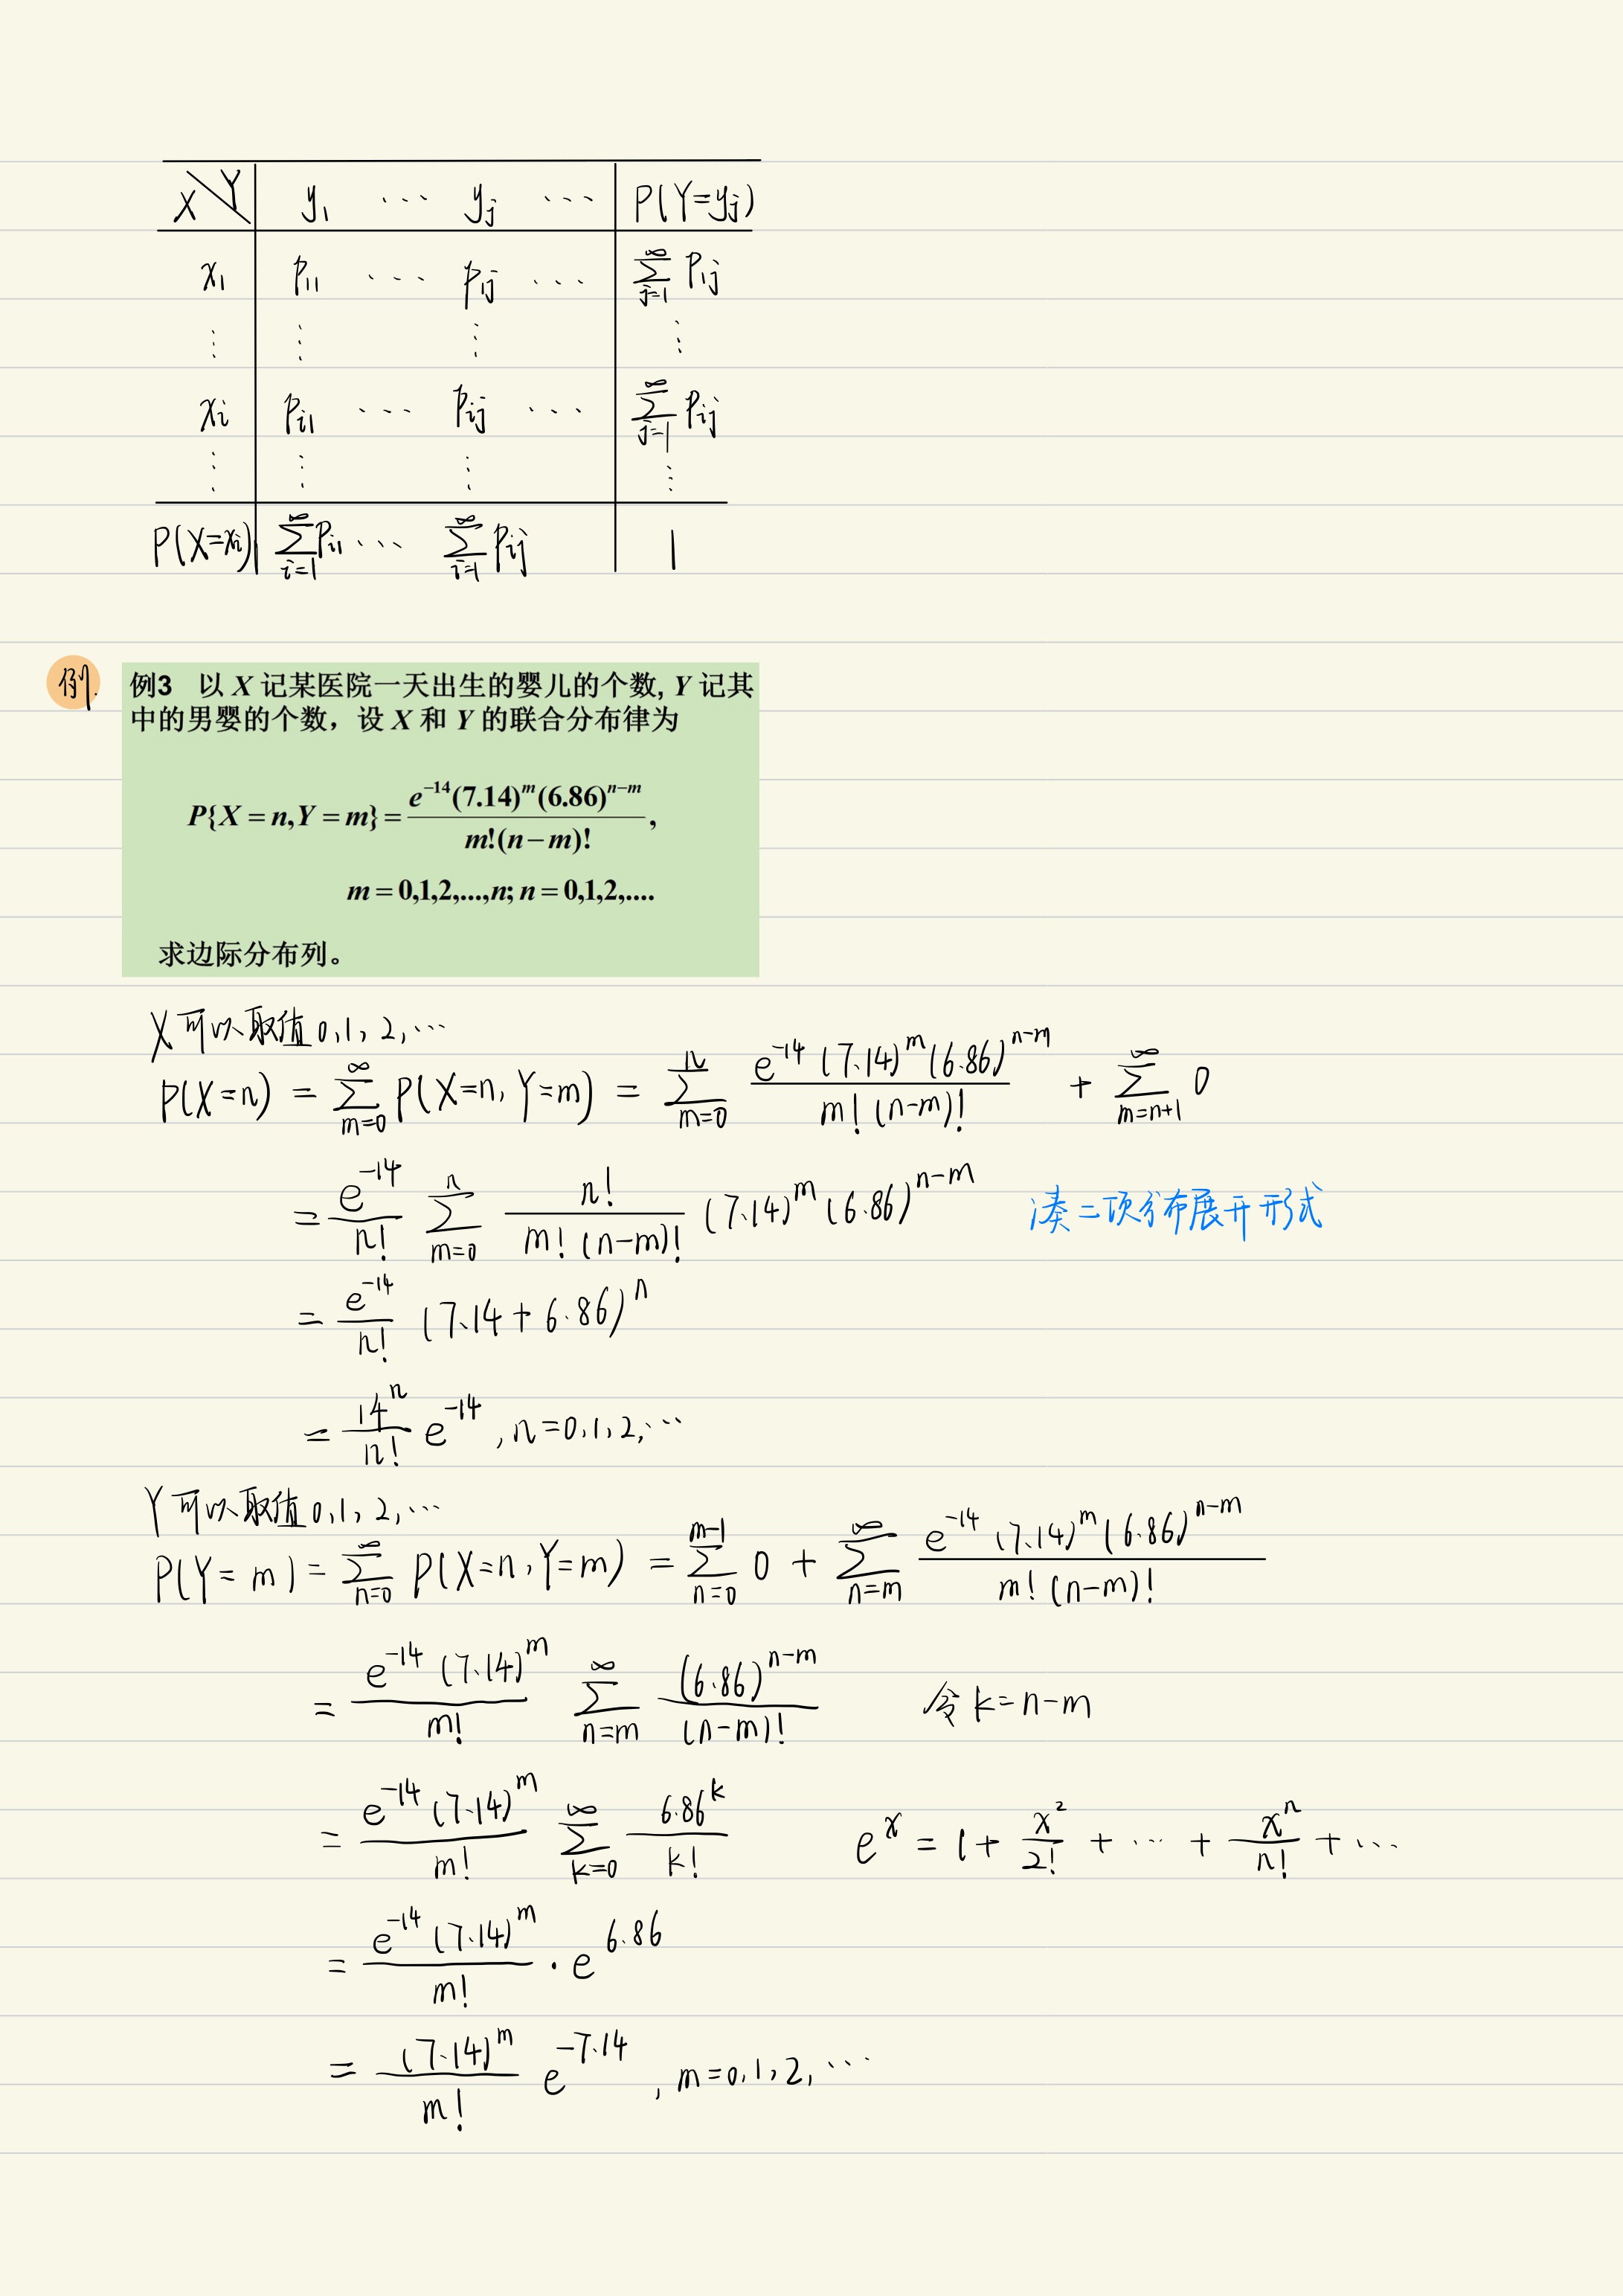 X\Y y₁ ⋯ yⱼ ⋯ P(Y=yⱼ)
x₁ p₁₁ ⋯ p₁ⱼ ⋯ ∑_{j=1}^{∞} P₁ⱼ
⋮ ⋮ ⋮ ⋮
xᵢ pᵢ₁ ⋯ pᵢⱼ ⋯ ∑_{j=1}^{∞} Pᵢⱼ
⋮ ⋮ ⋮ ⋮
P(X=xᵢ) ∑_{i=1}^{∞} Pᵢ₁ ⋯ ∑_{i=1}^{∞} Pᵢⱼ 1
例.
例3 以 X 记某医院一天出生的婴儿的个数, Y 记其
中的男婴的个数，设 X 和 Y 的联合分布律为
P{X = n,Y = m} = \frac{e^{-14}(7.14)^m(6.86)^{n-m}}{m!(n-m)!},
m = 0,1,2,...,n; n = 0,1,2,....
求边际分布列。
X可以取值 0, 1, 2, ⋯
P(X=n) = ∑_{m=0}^{∞} P(X=n, Y=m) = ∑_{m=0}^{n} \frac{e^{-14} (7.14)^m (6.86)^{n-m}}{m! (n-m)!} + ∑_{m=n+1}^{∞} 0
= \frac{e^{-14}}{n!} ∑_{m=0}^{n} \frac{n!}{m! (n-m)!} (7.14)^m (6.86)^{n-m} 凑二项分布展开形式
= \frac{e^{-14}}{n!} (7.14 + 6.86)^n
= \frac{14^n}{n!} e^{-14}, n=0, 1, 2, ⋯
Y可以取值 0, 1, 2, ⋯
P(Y=m) = ∑_{n=0}^{∞} P(X=n, Y=m) = ∑_{n=0}^{m-1} 0 + ∑_{n=m}^{∞} \frac{e^{-14} (7.14)^m (6.86)^{n-m}}{m! (n-m)!}
= \frac{e^{-14} (7.14)^m}{m!} ∑_{n=m}^{∞} \frac{(6.86)^{n-m}}{(n-m)!} 令 k=n-m
= \frac{e^{-14} (7.14)^m}{m!} ∑_{k=0}^{∞} \frac{6.86^k}{k!} e^x = 1 + \frac{x^2}{2!} + ⋯ + \frac{x^n}{n!} + ⋯
= \frac{e^{-14} (7.14)^m}{m!} · e^{6.86}
= \frac{(7.14)^m}{m!} e^{-7.14}, m=0, 1, 2, ⋯